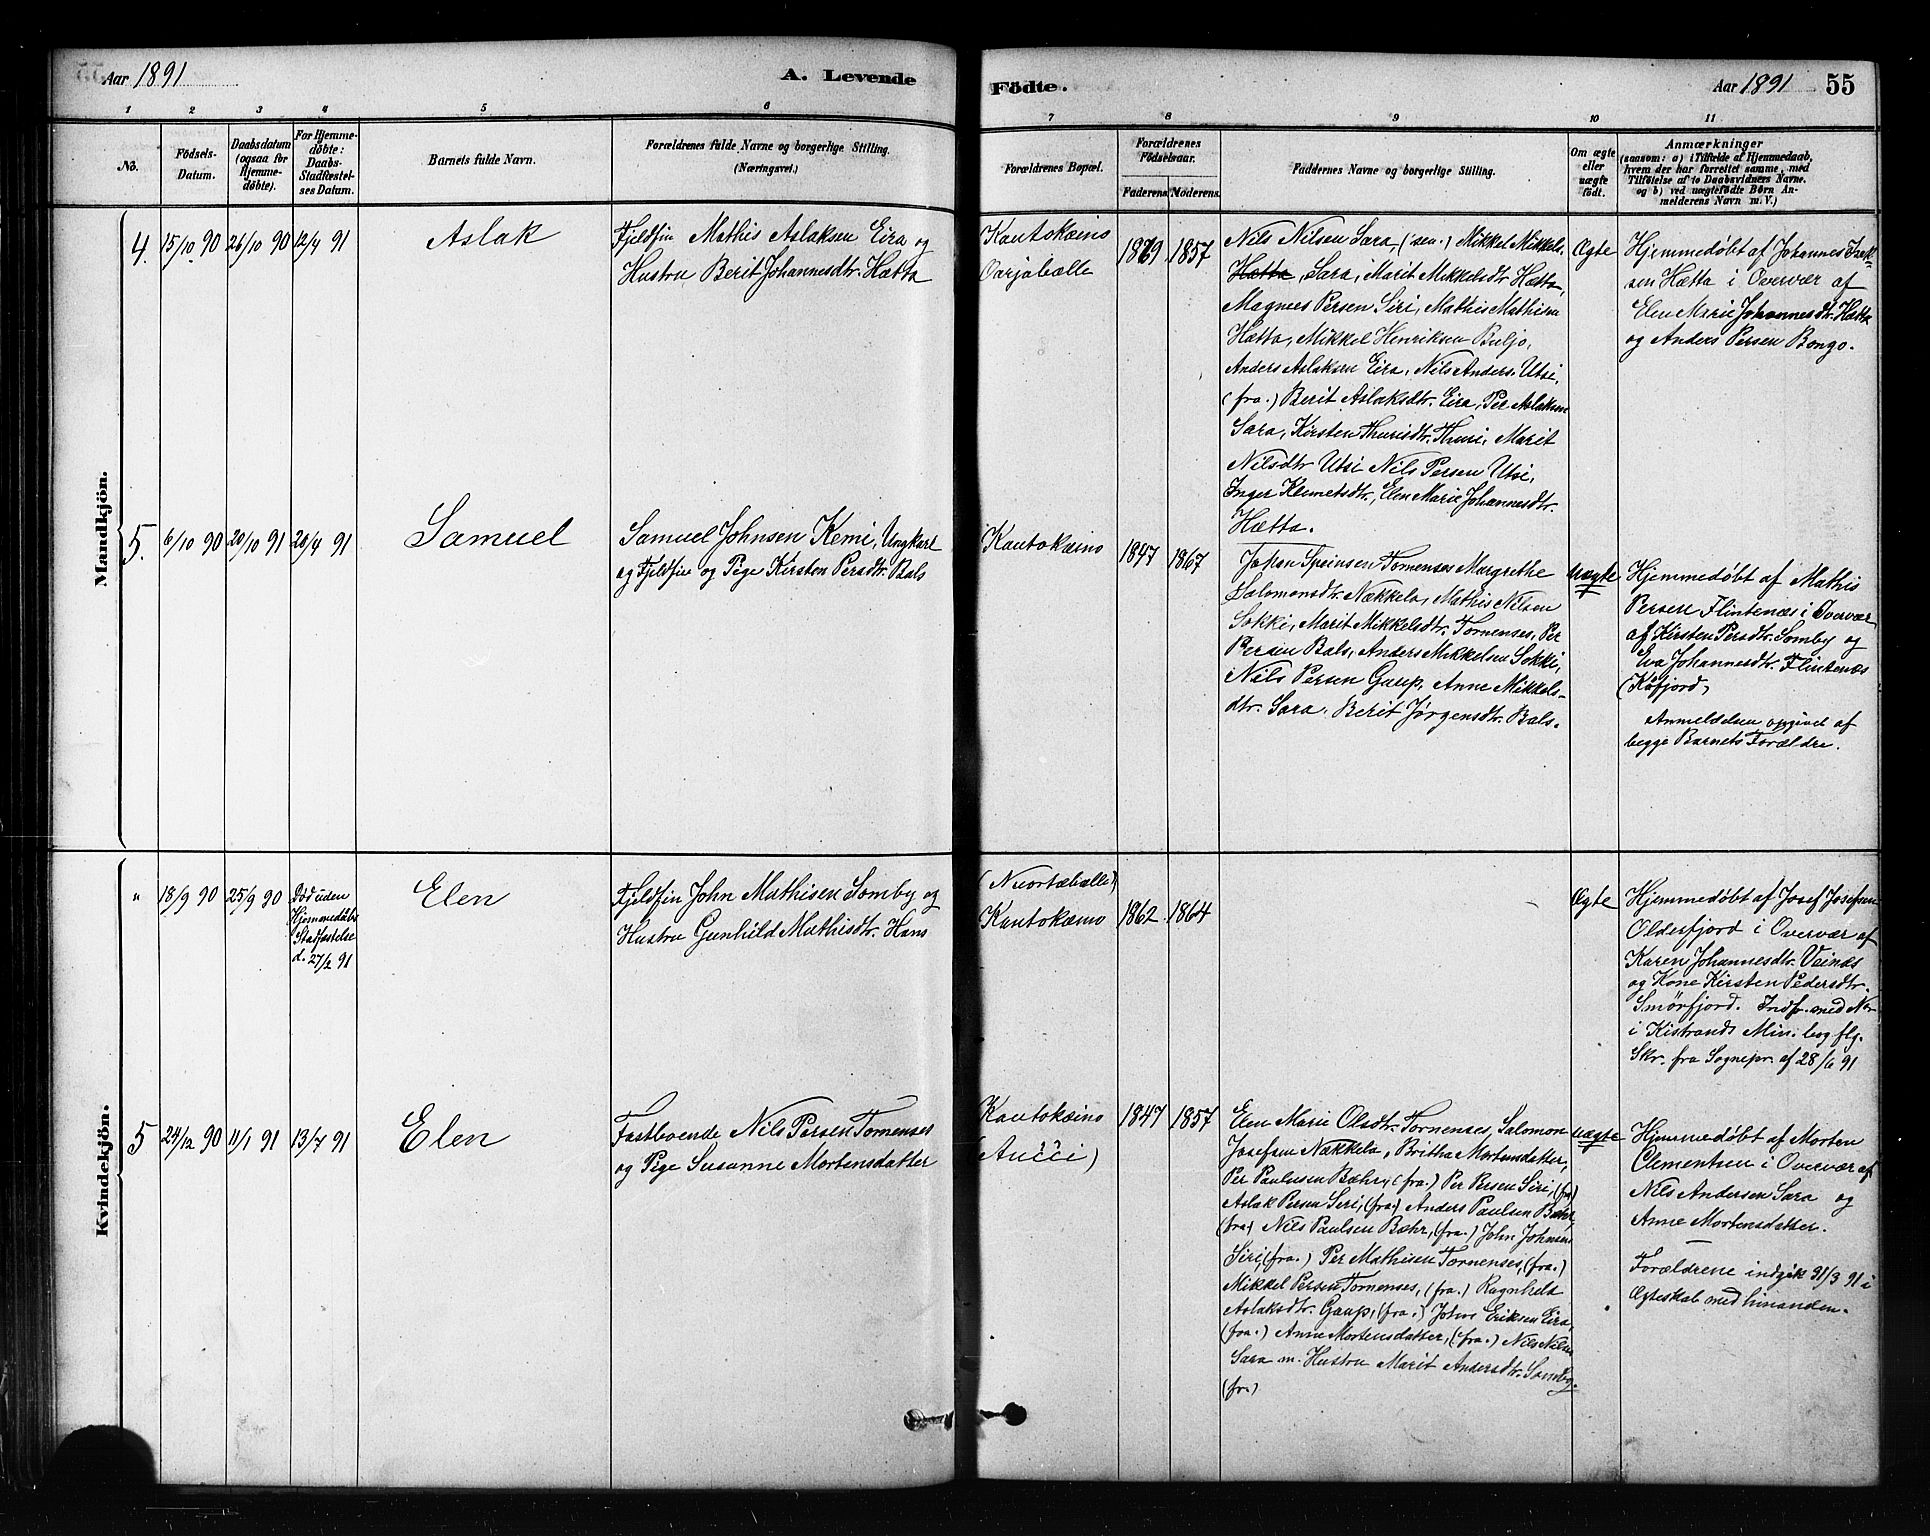 Aar 1891
A. Levende
Födte.
Aar 1891
55
1 2 3 4 5 6 7 8 9 10 11
No.
Födsels-
Datum.
Daabsdatum
(ogsaa for
Hjemme-
døbte).
For Hjemme-
døbte:
Daabs-
Stadfæstel-
ses Datum.
Barnets fulde Navn.
Forældrenes fulde Navne og borgerlige Stilling.
(Næringsvei.)
Forældrenes Bopæl.
Forældrenes
Födselsaar.
Faderens. Moderens.
Faddernes Navne og borgerlige Stilling.
Om ægte
eller
uægte
födt.
Anmærkninger
(saasom: a) i Tilfælde af Hjemmedaab,
hvem der har forrettet samme, med
Tilföielse af to Daabsvidners Navne.
og b) ved uægtefödte Börn An-
melderens Navn m. V.)
Mandkjön.
4. 15/10 90 26/10 90 12/4 91
Aslak
Fjeldfin Mathis Aslaksen Eira og
Hustru Berit Johannesdtr. Hætta
Kautokeino
1857
Nils Nilsen Sara, (sen.) Mikkel Mikkels.
Hætta, Sara, Marit Mikkelsdtr Hætta,
Magnes Persen Siri, Mathis Mathisen
Hætta, Mikkel Henriksen Buljo,
Anders Aslaksen Eira, Nils Anders. Utsi,
(fra.) Berit Aslaksdtr. Eira, Per Aslaksen
Sara, Kirsten Thurisdtr. Thuri, Marit
Nilsdtr Utsi Nils Persen Utsi,
Inger Klemetsdtr., Elen Marie Johannesdtr.
Hætta.
Ægte
Hjemmedøbt af Johannes Isak-
sen Hætta i Overvær af
Elen Marie Johannesdtr. Hætta
og Anders Persen Bongo.
5. 6/10 90 20/10 91 20/4 91
Samuel
Samuel Johnsen Kemi, Ungkarl
og Fjeldfin og Pige Kirsten Persdtr. Bals
Kautokeino
1847 1867
Tornenses Margrethe
Salomonsdtr. Nækkela, Mathis Nilsen
Sokki, Marit Mikkelsdtr. Tornenses, Per
Persen Bals, Anders Mikkelsen Sokki,
Nils Persen Gaup, Anne Mikkels-
dtr. Sara. Berit Jørgensdtr. Bals.
uægte
Hjemmedøbt af Mathis
Persen Flintenæs i Overvær
af Kirsten Persdtr. Somby og
Eva Johannesdtr. Flintenæs
(Kåfjord)
Anmeldelsen opgivet af
begge Barnets Forældre.
Kvindekjön.
" 18/9 90 25/9 90
Død uden
Hjemmedøbs
Stadfæstelse
d. 27/2 91
Elen
Fjeldfin John Mathisen Somby og
Hustru Gunhild Mathisdtr. Hans
(Nuortabælle)
Kautokeino
1862 1864
Ægte
Hjemmedøbt af Josef Josefsen
Oldesfjord i Overvær af
Karen Johannesdtr. Veinæs
og Kone Kirsten Pedersdtr.
Smörfjord. Indf. med No
i Kistrands Min. bog flg.
Skr. fra Sognepr. af 28/6 91
5 24/12 90 11/1 91 13/7 91
Elen
Fastboende Nils Persen Tornenses
og Pige Susanne Mortensdatter
Kautokeino
1847 1857
Elen Marie Olsdtr. Tornenses, Salomon
Josefsen Nækkela, Britha Mortensdatter,
Per Paulusen Bæhr, (fra.) Per Persen Siri, (fra)
Aslak Persen Siri, (fra.) Anders Paulsen Bæhr,
(fra) Nils Paulsen Bæhr, (fra.) John Johnsen
Siri, (fra.) Per Mathisen Tornenses, (fra.)
Mikkel Persen Tornenses, (fra.) Ragnhild
Aslaksdtr. Gaup, (fra.) Johns Eriksen Eira,
(fra.) Anne Mortensdatter, (fra.) Nils Nilsen
Sara m. Hustru Marit Andersdtr. Somby.
(fr.)
uægte
Hjemmedøbt af Morten
Clementsen i Overvær af
Nils Andersen Sara og
Anne Mortensdatter.
Forældrene indgik 31/3 91 i
Ægteskab med hinanden.